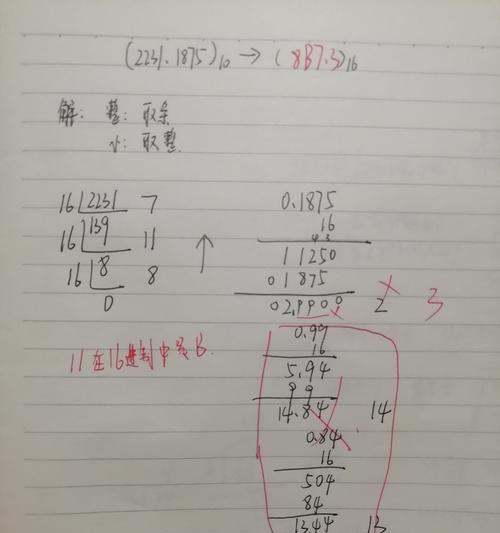 (2231.1875)₁₀ → (8B7.3)₁₆
解: 整: 取余
小: 取整
16 2231 7
16 139 11
16 8 8
0
↑
0.1875
16
4 3
11250
01875
02.9900 2 3
0.99
16
5.94
99
14.84 14
0.84
16
504
84
13.44 13
11在16进制中是B.